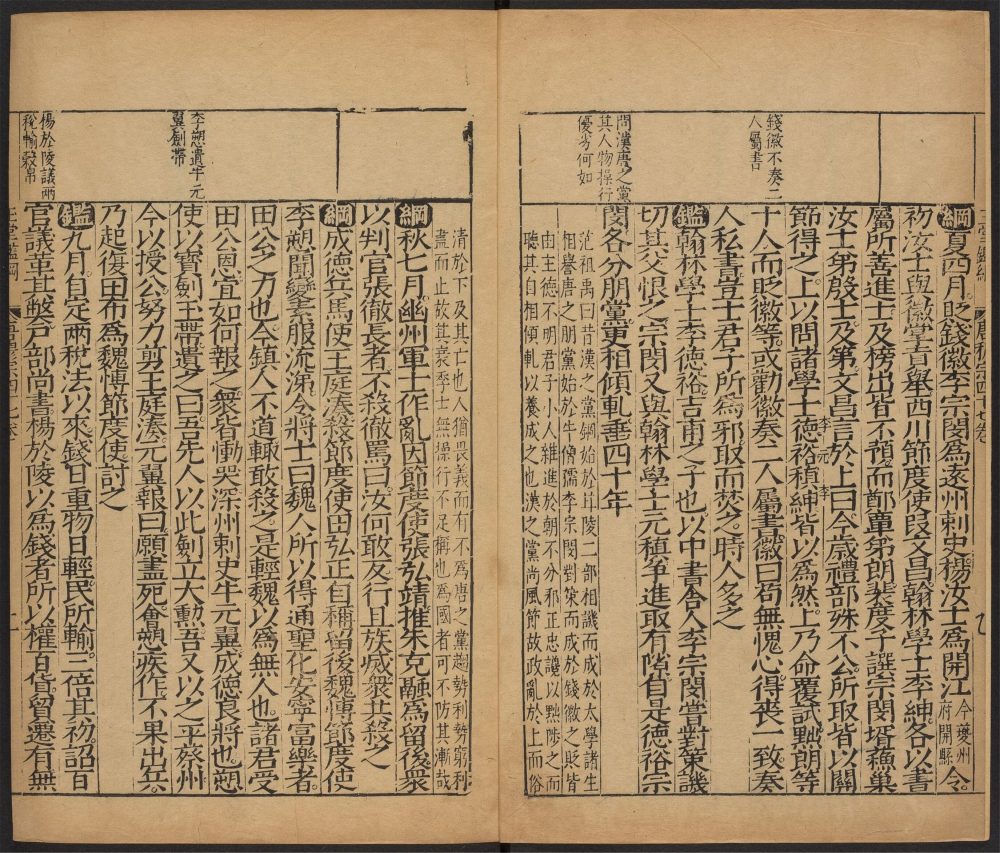 錢徽不奏二
人屬書
問漢唐之黨
其人物操行
優劣何如
綱夏四月貶錢徽李宗閔爲遠州刺史楊汝士爲開江今夔州府開縣令
初汝士與徽掌貢舉西川節度使段文昌翰林學士李紳各以書
屬所善進士及榜出皆不預而鄭覃弟朗裴度子譔宗閔壻蘇巢
汝士弟殷士及第文昌言於上曰今歲禮部殊不公所取皆以關
節得之上以問諸學士德裕稹紳皆以爲然上乃命覆試黜朗等
李 元 李
十人而貶徽等或勸徽奏二人屬書徽曰苟無愧心得喪一致奏
人私書豈士君子所爲邪取而焚之時人多之
鑑翰林學士李德裕吉甫之子也以中書舍人李宗閔嘗對策譏
切其父恨之宗閔又與翰林學士元稹爭進取有隙自是德裕宗
閔各分朋黨更相傾軋垂四十年
范祖禹曰昔漢之黨錮始於甘陵二部相譏而成於太學諸生
相譽唐之朋黨始於牛僧孺李宗閔對策而成於錢徽之貶皆
由主德不明君子小人雜進於朝不分邪正忠讒以黜陟之而
聽其自相傾軋以養成之也漢之黨尚風節故政亂於上而俗
李愬遺牛元
翼劍帶
楊於陵議兩
稅輸穀帛
清於下及其亡也人猶畏義而有不爲唐之黨趨勢利勢窮利
盡而止故其衰季士無操行不足稱也爲國者可不防其漸哉
綱秋七月幽州軍士作亂因節度使張弘靖推朱克融爲留後衆
以判官張徹長者不殺徹罵曰汝何敢反行且族滅衆共殺之
綱成德兵馬使王庭湊殺節度使田弘正自稱留後魏愽節度使
李愬聞變素服流涕令將士曰魏人所以得通聖化安寧富樂者
田公之力也今鎮人不道輙敢殺之是輕魏以爲無人也諸君受
田公恩宜如何報之衆皆慟哭深州刺史牛元翼成德良將也愬
使以寶劍玉帶遺之曰吾先人以此劍立大勳吾又以之平蔡州
今以授公努力剪王庭湊元翼報曰願盡死會愬疾作不果出兵
乃起復田布爲魏愽節度使討之
鑑九月自定兩稅法以來錢日重物日輕民所輸三倍其初詔百
官議革其弊戶部尚書楊於陵以爲錢者所以權百貨貿遷有無